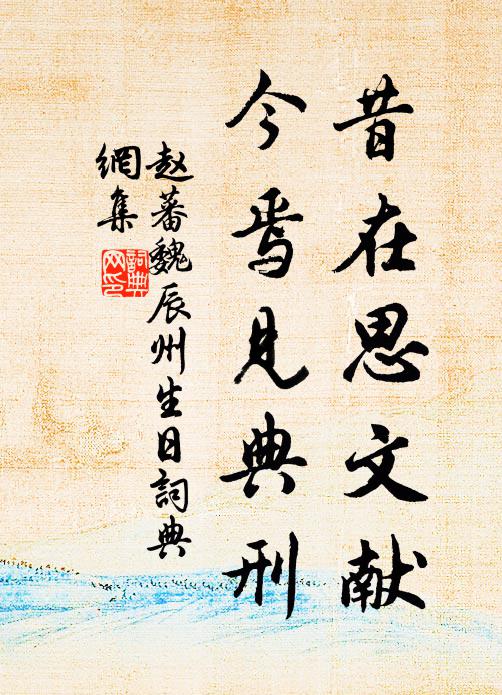 昔在思文献
今焉見典刑
赵蕃魏辰州生日詞典
網集
詞典
网印